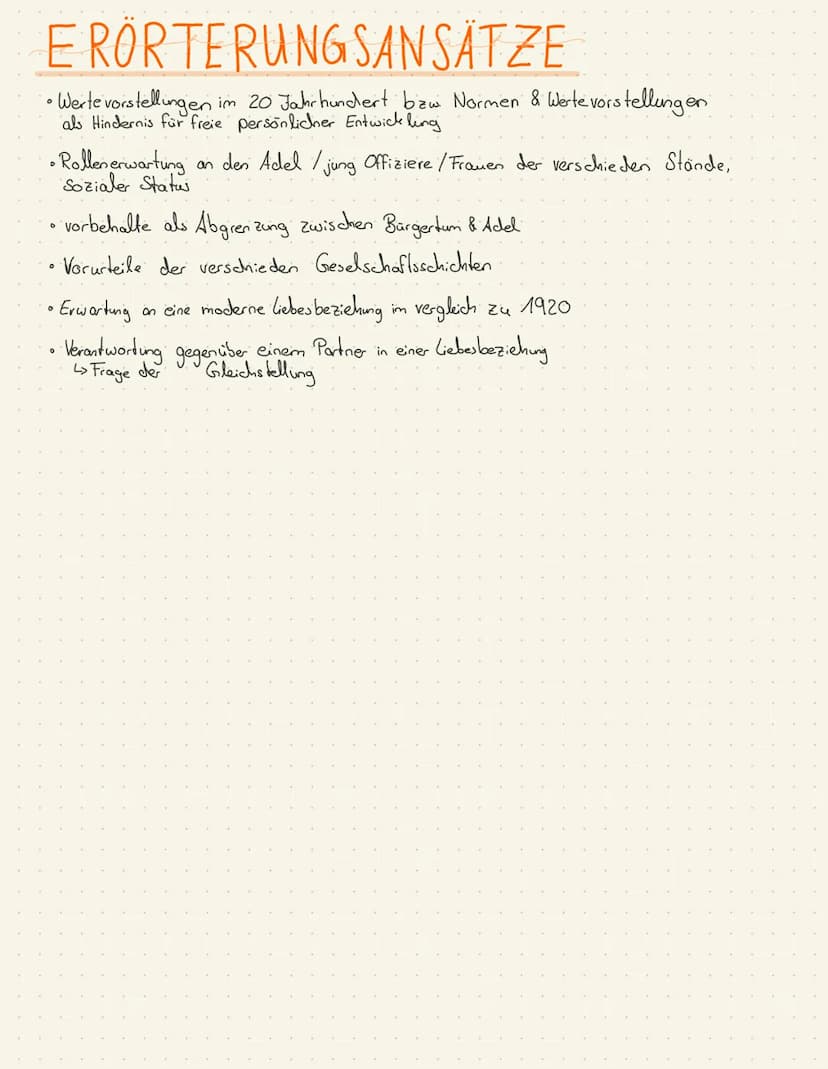 ERÖRTERUNGSANSÄTZE
• Wertevorstellungen im 20 Jahrhundert bzw Normen & Wertevorstellungen
als Hindernis für freie persönlicher Entwicklung
• Rollenerwartung an den Adel / jung Offiziere / Frauen der verschieden Stände,
Sozialer Status
• vorbehalte als Abgrenzung zwischen Bürgertum & Adel
• Vorurteile der verschieden Geselschaftsschichten
• Erwartung an eine moderne Liebesbeziehung im vergleich zu 1920
• Verantwortung gegenüber einem Partner in einer Liebesbeziehung
↳ Frage der Gleichstellung